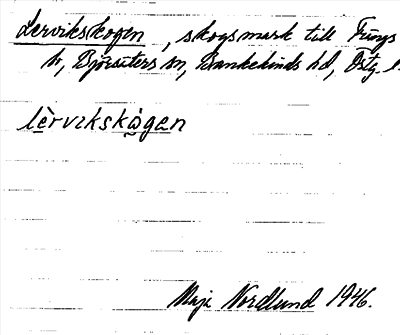 Lervikskogen, skogsmark till Frings
by, Björsäters sn, Bankekinds hd, Östg. l.
lèrvɩkskå̀gen
Maja Nordlund 1946.